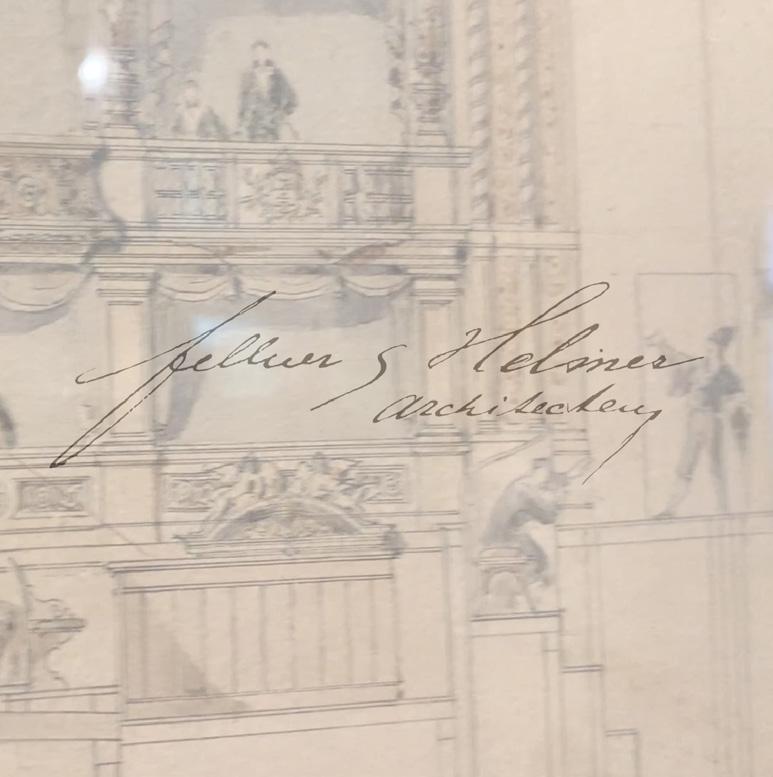 Fellner & Helmer
Architecten